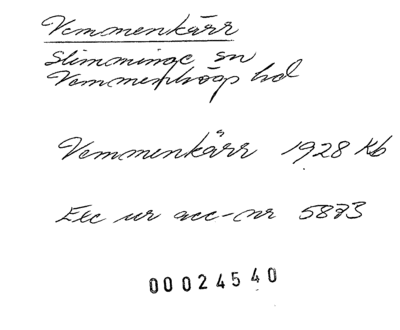 Vemmenkärr
Slimminge sn
Vemmenhögs hd
Vemmenkärr 1928 Kb
Exc ur acc-nr 5873
00024540